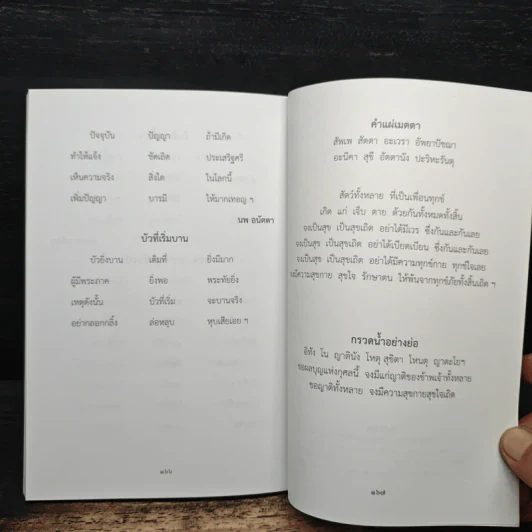 ปัจจุบัน ปัญญา ถ้ามีเกิด
ทำให้แจ้ง ชัดเถิด ประเสริฐศรี
เห็นความจริง สิ่งใด ในโลกนี้
เพิ่มปัญญา บารมี ให้มากเทอญ ฯ
นพ อนัตตา
บัวที่เริ่มบาน
บัวยิ่งบาน เต็มที่ ยิ่งมีมาก
ผู้มีพระภาค ยิ่งพอ พระทัยยิ่ง
เหตุดังนั้น บัวที่เริ่ม จะบานจริง
อย่ากลอกกลิ้ง ล่อหลุบ หุบเสียเอย ฯ
๑๖๖
คำแผ่เมตตา
สัพเพ สัตตา อะเวรา อัพยาปัชฌา
อะนีฆา สุขี อัตตานัง ปะริหะรันตุ
สัตว์ทั้งหลาย ที่เป็นเพื่อนทุกข์
เกิด แก่ เจ็บ ตาย ด้วยกันทั้งหมดทั้งสิ้น
จงเป็นสุข เป็นสุขเถิด อย่าได้มีเวร ซึ่งกันและกันเลย
จงเป็นสุข เป็นสุขเถิด อย่าได้เบียดเบียน ซึ่งกันและกันเลย
จงเป็นสุข เป็นสุขเถิด อย่าได้มีความทุกข์กาย ทุกข์ใจเลย
จงมีความสุขกาย สุขใจ รักษาตน ให้พ้นจากทุกข์ภัยทั้งสิ้นเถิด ฯ
กรวดน้ำอย่างย่อ
อิทัง โน ญาตินัง โหตุ สุขิตา โหนตุ ญาตะโยฯ
ขอผลบุญแห่งกุศลนี้ จงมีแก่ญาติของข้าพเจ้าทั้งหลาย
ขอญาติทั้งหลาย จงมีความสุขกายสุขใจเถิด
๑๖๗